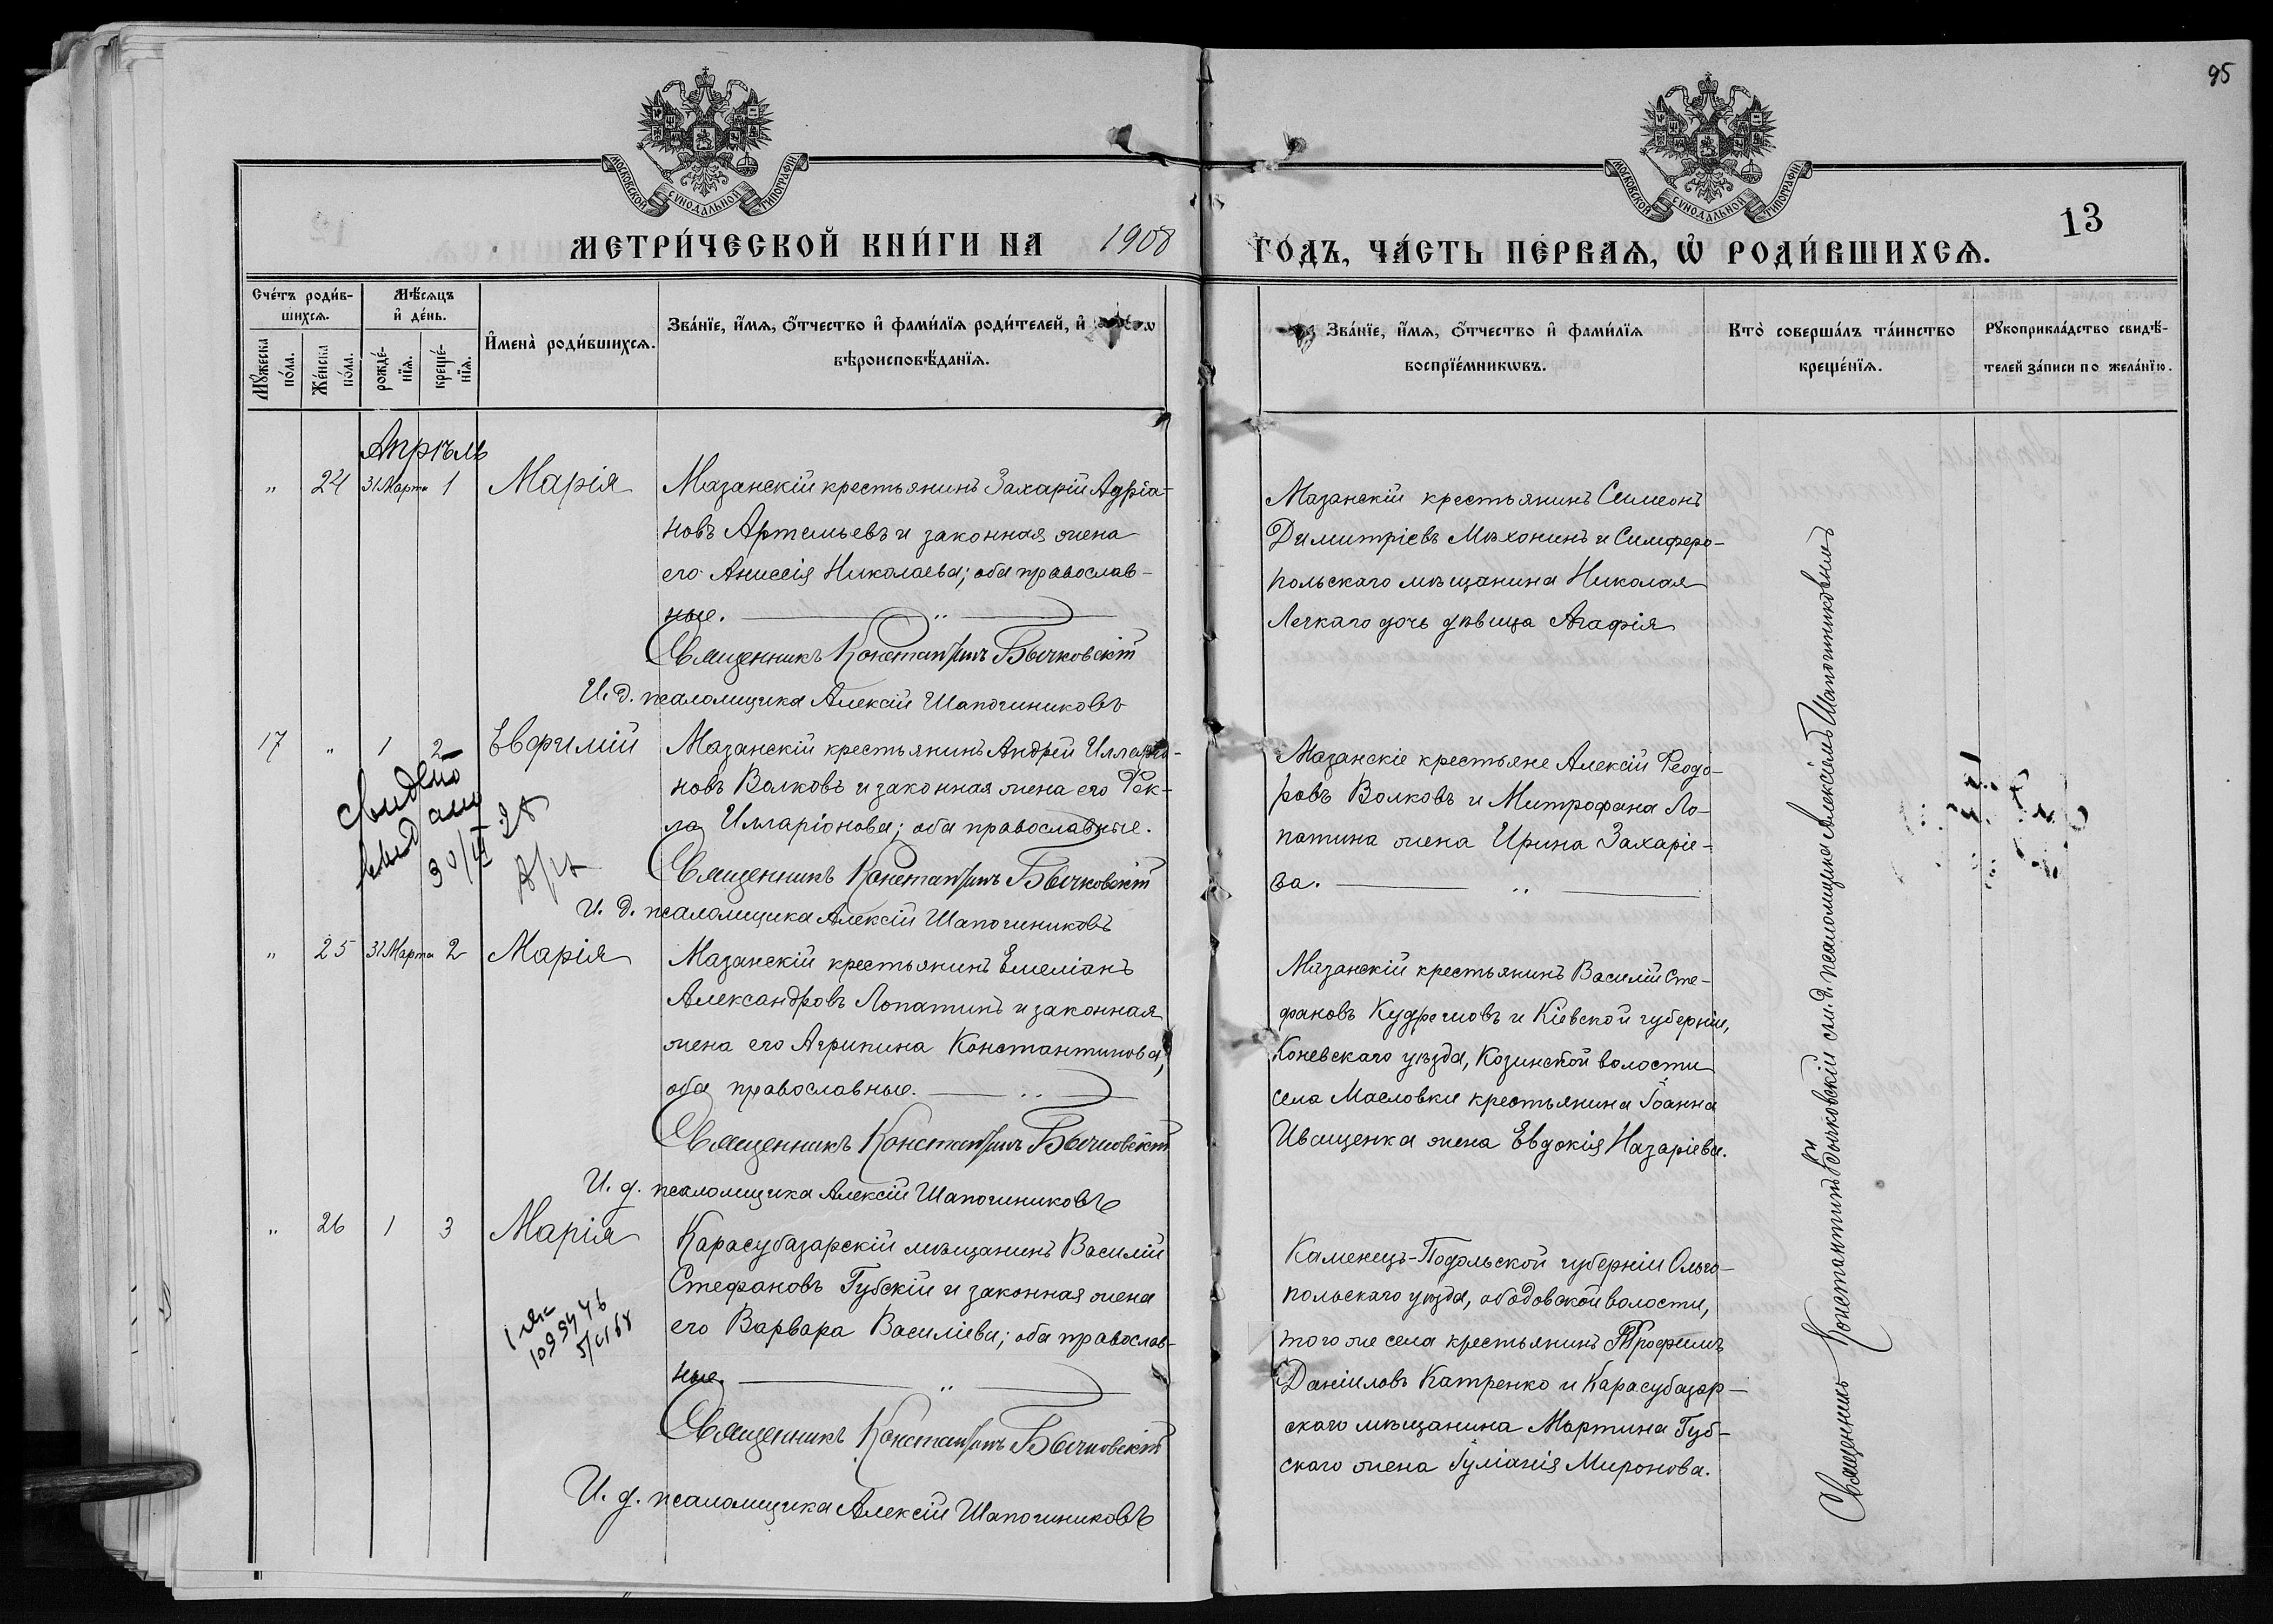 95
МОСКОВСКОЙ СѴНОДАЛЬНОЙ ТИПОГРАФІИ
МОСКОВСКОЙ СѴНОДАЛЬНОЙ ТИПОГРАФІИ
13
МЕТРИ́ЧЕСКОЙ КНИ́ГИ НА 1908 ГО́ДЪ, ЧА́СТЬ ПЕ́РВАѦ, Ѡ҆ РОДИ́ВШИХСѦ.
Сче́тъ роди́в-
шихсѧ.
Мꙋ́жеска по́ла.
Же́нска по́ла.
Мѣ́сѧцъ
и҆ де́нь.
рожде́-
нїѧ.
креще́-
нїѧ.
И҆мена̀ роди́вшихсѧ.
Зва́нїе, и҆́мѧ, ѻ҆́тчество и҆ фами́лїѧ роди́телей, и҆
вѣроисповѣ́данїѧ.
Зва́нїе, и҆́мѧ, ѻ҆́тчество и҆ фами́лїѧ
воспрїе́мникѡвъ.
Кто̀ соверша́лъ та́инство
креще́нїѧ.
Рꙋкоприкла́дство свидѣ́-
телей за́писи по жела́нїю.
Апрѣль
" 24 31 Марта 1 Марія
Мазанскій крестьянинъ Захарій Адріа-
новъ Артемьевъ и законная жена
его Анисія Николаева; оба православ-
ные. — " —
Священникъ Константинъ Бычковскій
И. д. псаломщика Алексій Шапошниковъ
Мазанскій крестьянинъ Симеонъ
Димитріевъ Мѣхонинъ и Симферо-
польскаго мѣщанина Николая
Легкаго дочь дѣвица Агафія
17 " 1 2 Евфимій
Мазанскій крестьянинъ Андрей Илларіо-
новъ Волковъ и законная жена его Фек-
ла Илларіонова; оба православные.
Священникъ Константинъ Бычковскій
И. д. псаломщика Алексій Шапошниковъ
30/
Мазанскіе крестьяне Алексій Феодо-
ровъ Волковъ и Митрофана Ло-
патина жена Ирина Захаріе-
ва. — " —
" 25 31 Марта 2 Марія
Мазанскій крестьянинъ Емеліанъ
Александровъ Лопатинъ и законная
жена его Агрипина Константинова,
оба православные. — " —
Священникъ Константинъ Бычковскій
И. д. псаломщика Алексій Шапошниковъ
Мазанскій крестьянинъ Василій Сте-
фановъ Кудряшовъ и Кіевской губерніи,
Каневскаго уѣзда, Козинской волости
села Масловки крестьянина Іоанна
Иващенка жена Евдокія Назаріева.
" 26 1 3 Марія
Карасубазарскій мѣщанинъ Василій
Стефановъ Губскій и законная жена
его Варвара Василіева; оба православ-
ные. — " —
Священникъ Константинъ Бычковскій
И. д. псаломщика Алексій Шапошниковъ
Каменецъ-Подольской губерніи Ольго-
польскаго уѣзда, ободовской волости,
того же села крестьянинъ Трофимъ
Даніиловъ Катренко и Карасубазар-
скаго мѣщанина Мартина Губ-
скаго жена Іуліанія Миронова.
Священникъ Константинъ Бычковскій съ и. д. псаломщика Алексіемъ Шапошниковымъ